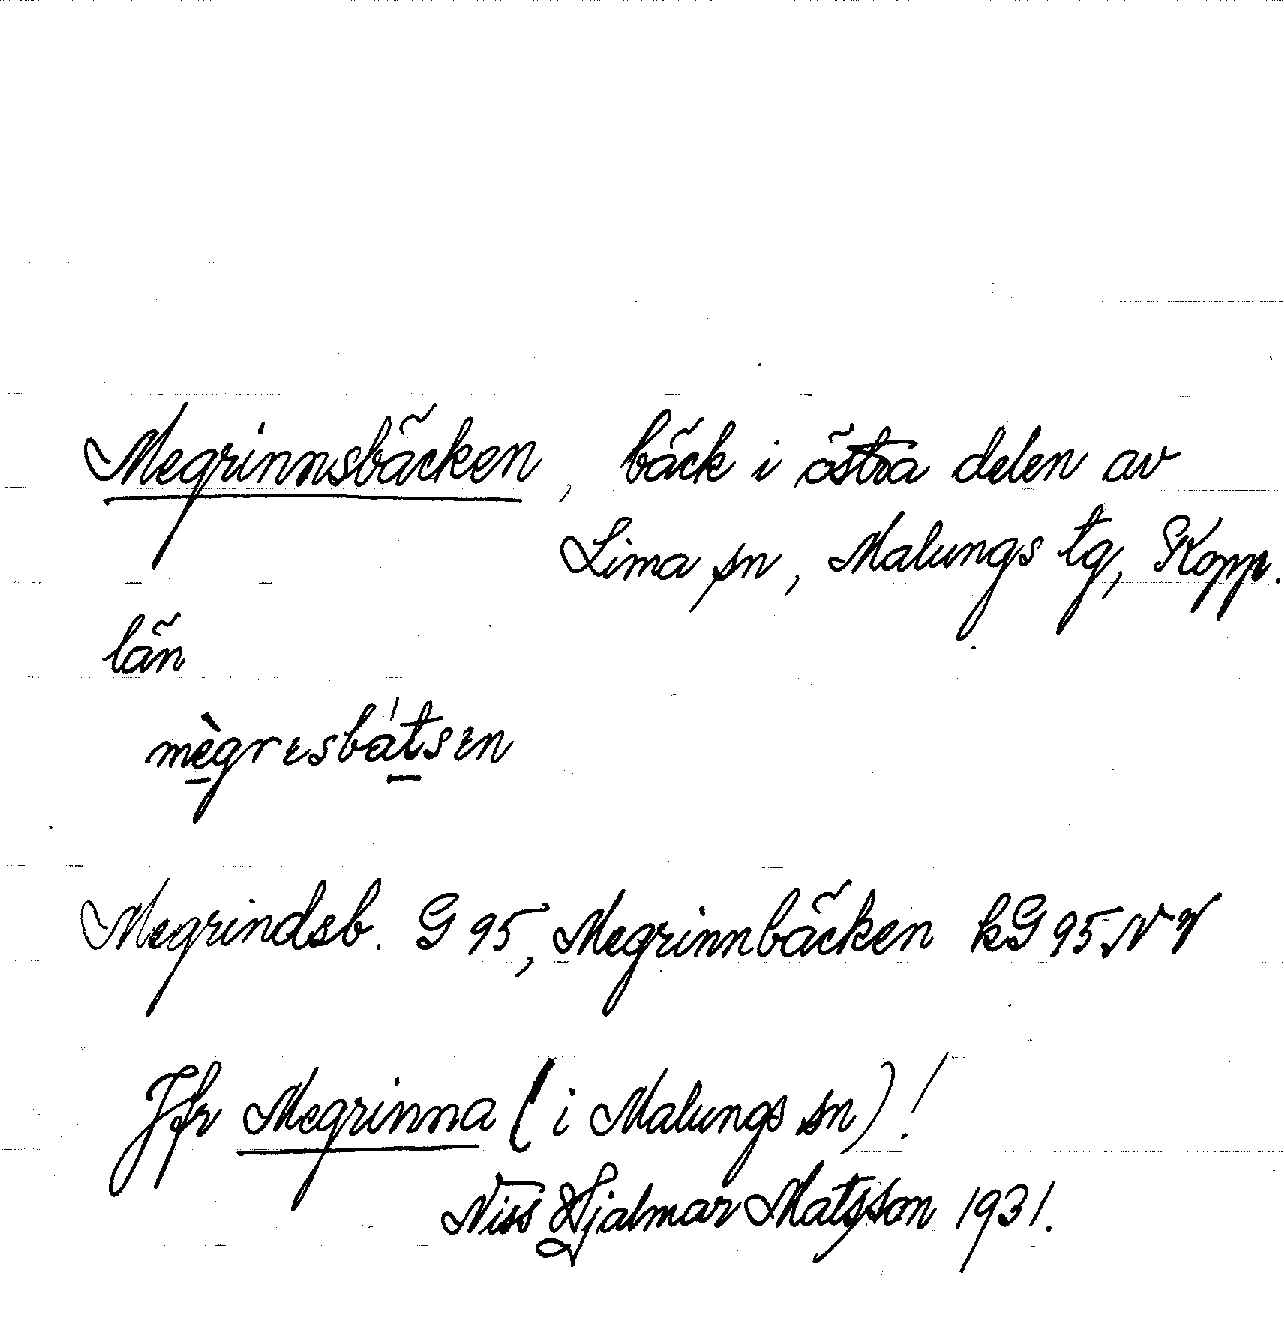 Megrinnsbäcken, bäck i östra delen av
Lima sn, Malungs tg, Kopp.
län
mègrɪsbátsɪn
Megrindsb. G 95, Megrinnbäcken kG 95 NV
Jfr Megrinna (i Malungs sn)!
Niss Hjalmar Matsson 1931.